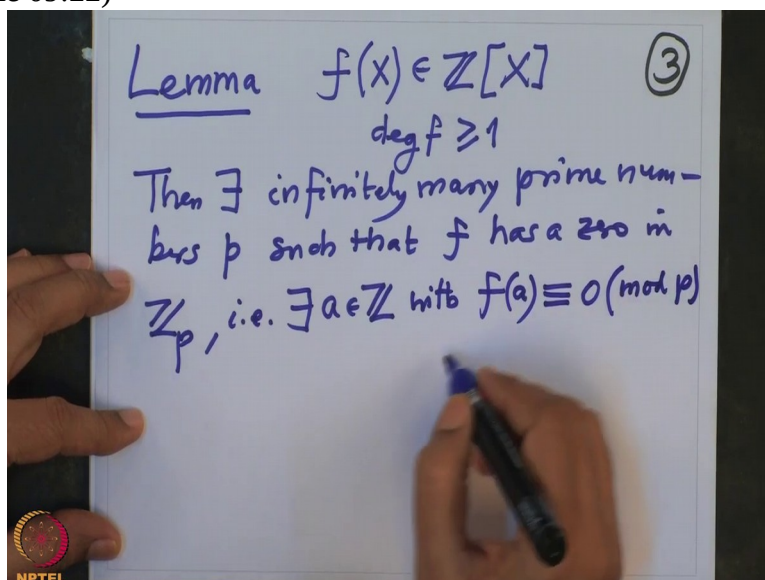 Lemma f(X) ∈ ℤ[X] ③
deg f ⩾ 1
Then ∃ infinitely many prime num-
bers p such that f has a zero in
ℤ_p, i.e. ∃ a ∈ ℤ with f(a) ≡ 0 (mod p)
NPTEL